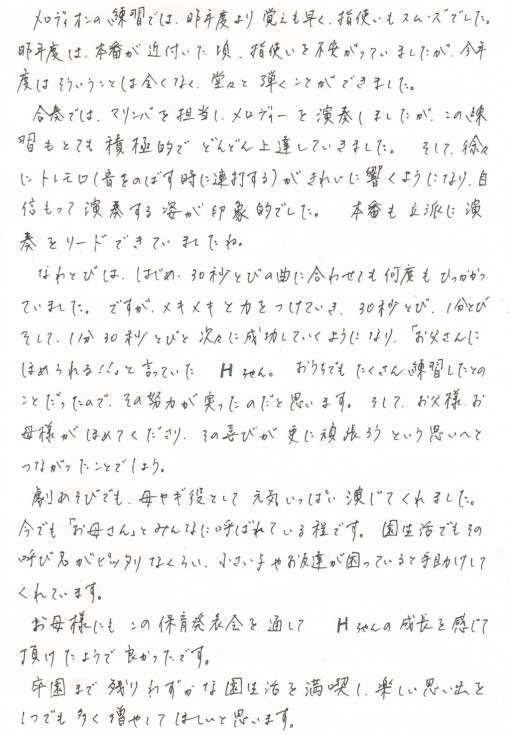 メロディオンの練習では、昨年度より覚えも早く、指使いもスムーズでした。
昨年度は、本番が近付いた頃、指使いを不安がっていましたが、今年
度はそういうことは全くなく、堂々と弾くことができました。
合奏では、マリンバを担当し、メロディーを演奏しましたが、この練
習もとても積極的でどんどん上達していきました。そして、徐々
にトレモロ(音をのばす時に連打する)がきれいに響くようになり、自
信もって演奏する姿が印象的でした。本番も立派に演
奏をリードできていましたね。
なわとびは、はじめ、30秒とびの曲に合わせても何度もひっかかっ
ていました。ですが、メキメキと力をつけていき、30秒とび、1分とび
そして、1分30秒とびと次々に成功していくようになり、「お父さんに
ほめられる!!」と言っていた Hちゃん。おうちでもたくさん練習したとの
ことだったので、その努力が実ったのだと思います。そして、お父様、お
母様がほめてくださり、その喜びが更に頑張ろうという思いへと
つながったことでしょう。
劇あそびでも、母ヤギ役として元気いっぱい演じてくれました。
今でも「お母さん」とみんなに呼ばれている程です。園生活でもその
呼び名がピッタリなくらい、小さい子やお友達が困っていると手助けして
くれています。
お母様にもこの保育発表会を通して Hちゃんの成長を感じて
頂けたようで良かったです。
卒園まで残りわずかな園生活を満喫し、楽しい思い出を
1つでも多く増やしてほしいと思います。